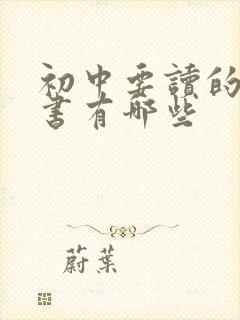 初中要讀的
書有哪些
蔚葉